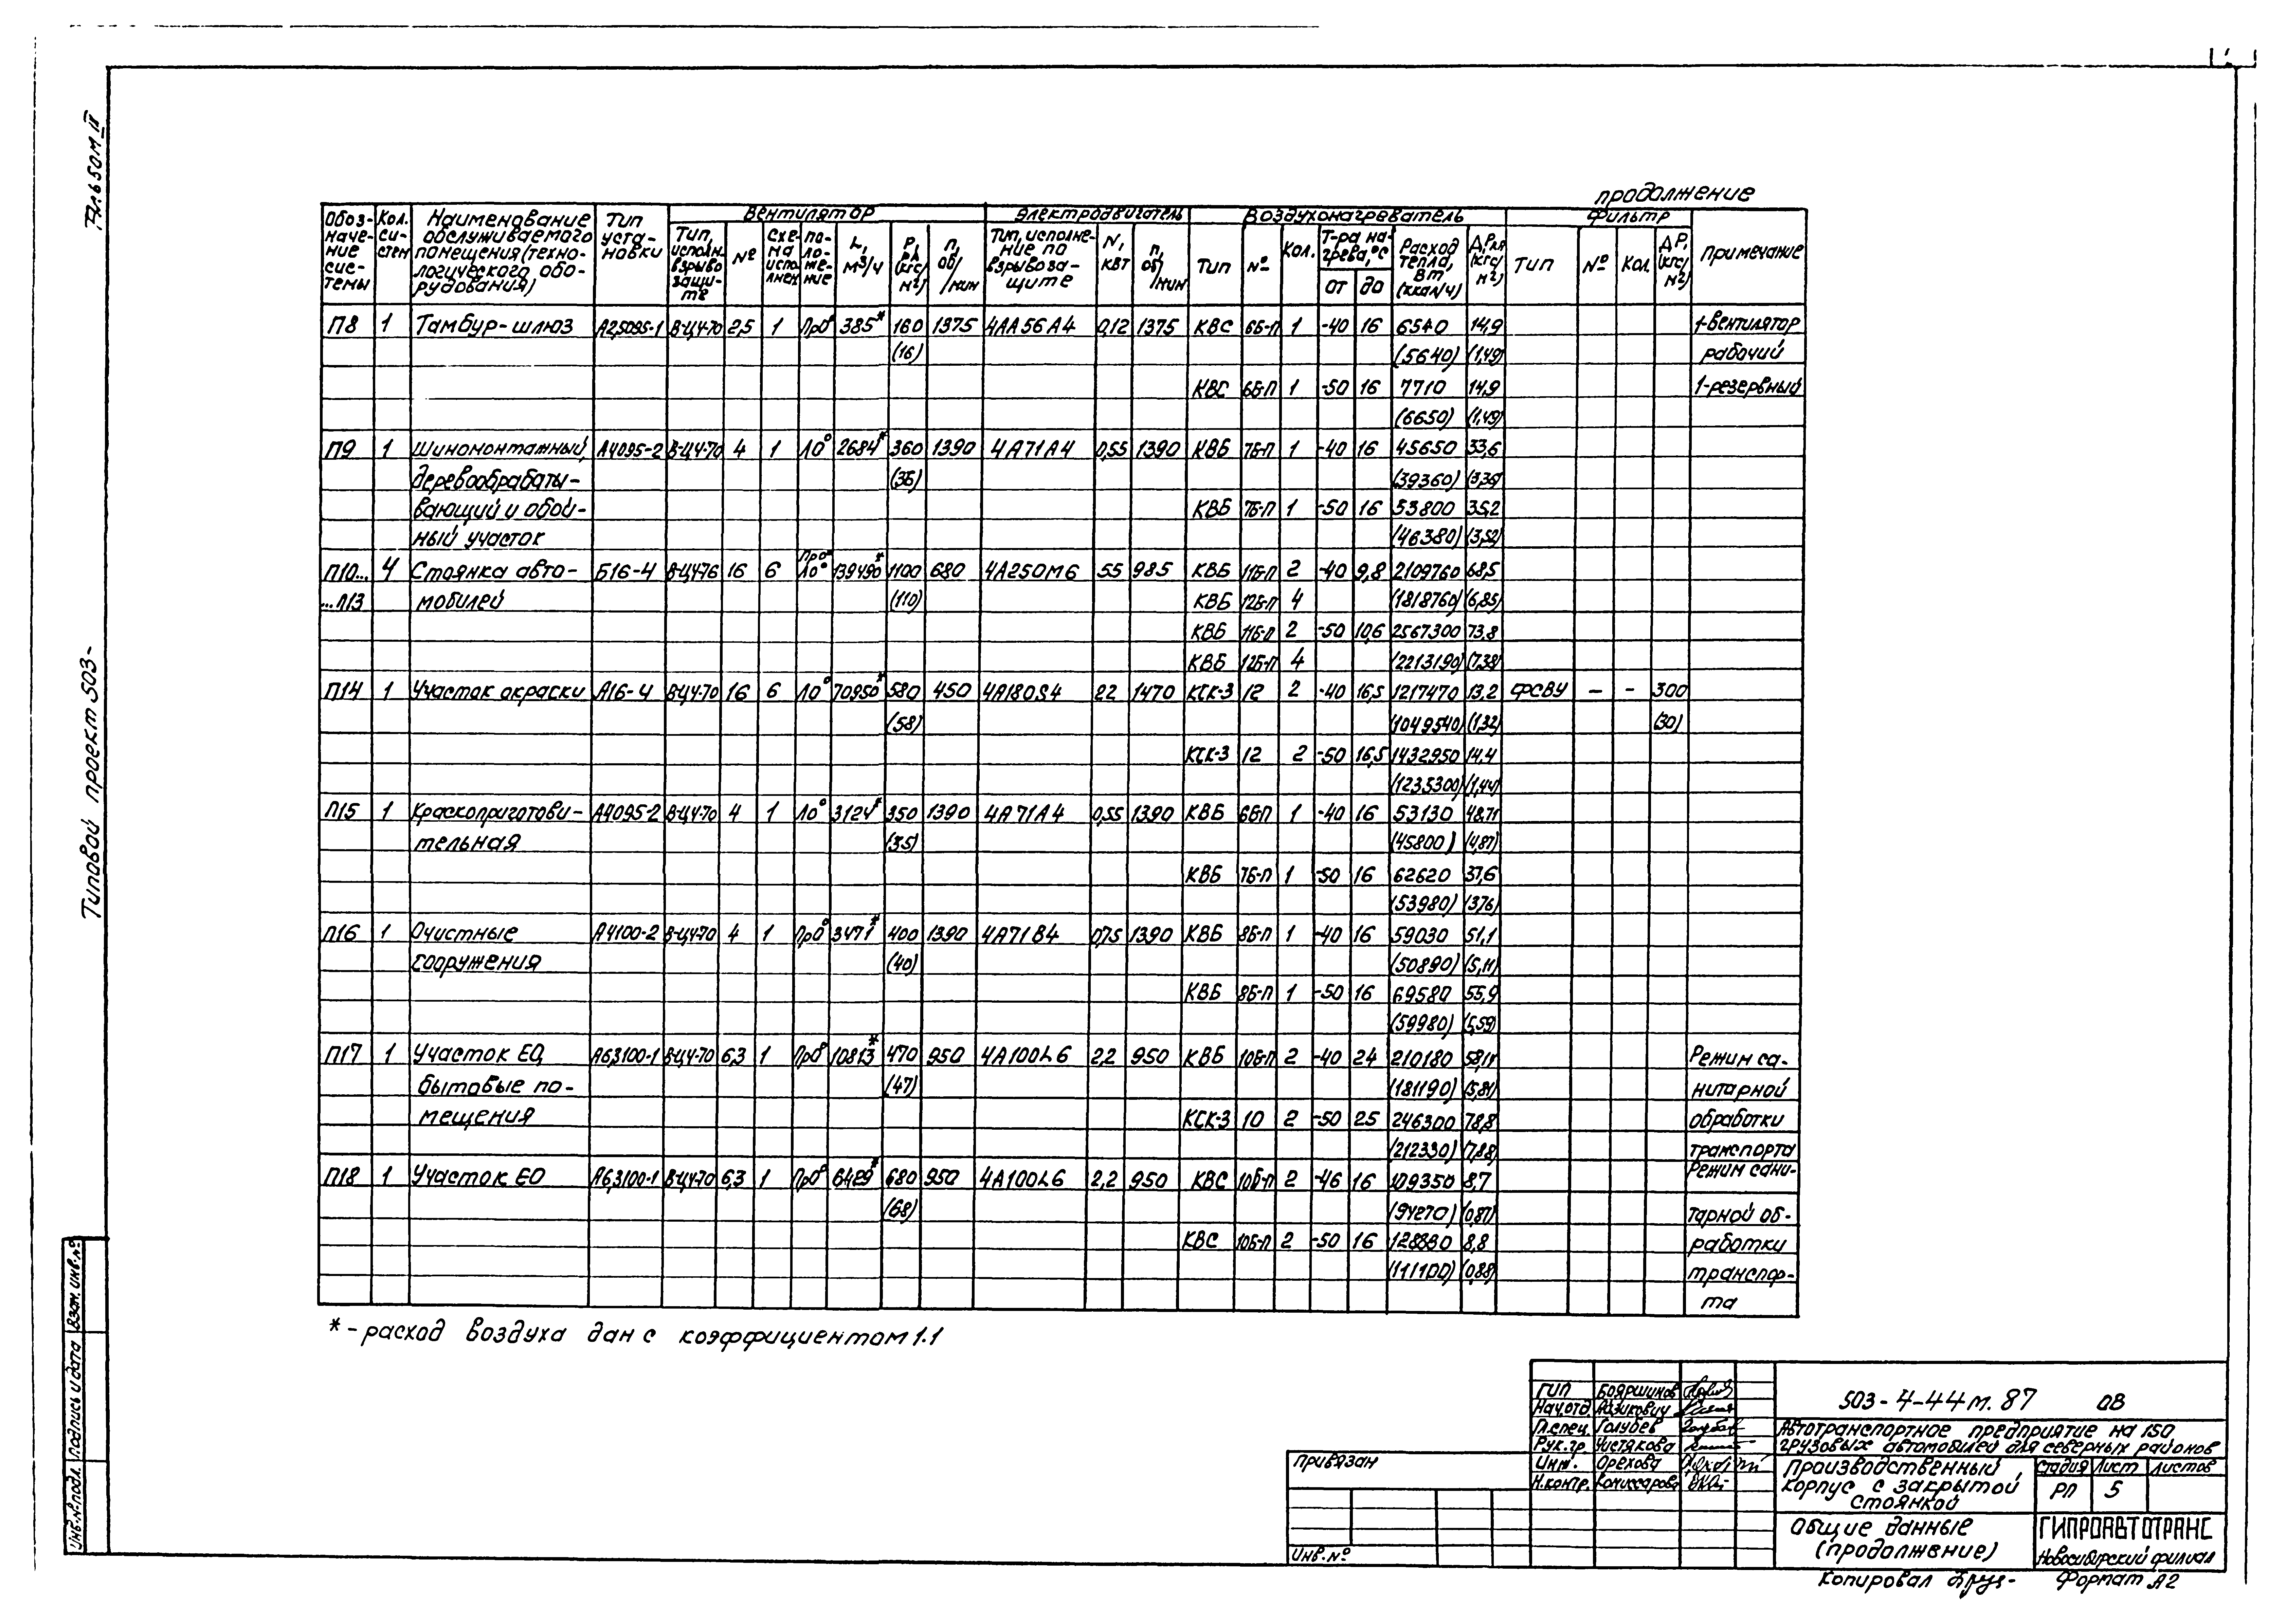 Альбом II
Типовой проект 503-
продолжение
Обозначение системы | Кол. систем | Наименование обслуживаемого помещения (технологического оборудования) | Тип установки | Вентилятор | Электродвигатель | Воздухонагреватель | Фильтр | Примечание
Тип, исполн. взрывозащите | № | Схема исполнен | Положение | L, м³/ч | P, Па (кгс/м²) | п, об/мин | Тип, исполнение по взрывозащите | N, кВт | п, об/мин | Тип | № | Кол. | Т-ра нагрева, °С от до | Расход тепла, Вт (ккал/ч) | ΔP, Па (кгс/м²) | Тип | № | Кол. | ΔP, (кгс/м²)
П8 1 Тамбур-шлюз А2,5095-1 В-Ц4-70 2,5 1 Пр0° 385* 160 1375 4АА56А4 0,12 1375 КВС 6Б-П 1 -40 16 6540 14,9 1-вентилятор
(16) (5640) (1,49) рабочий
КВС 6Б-П 1 -50 16 7710 14,9 1-резервный
(6650) (1,49)
П9 1 Шиномонтажный, А4095-2 В-Ц4-70 4 1 Л0° 2684* 360 1390 4А71А4 0,55 1390 КВБ 7Б-П 1 -40 16 45650 33,6
деревообрабаты- (36) (39360) (3,36)
вающий и обой- КВБ 7Б-П 1 -50 16 53800 35,2
ный участок (46380) (3,52)
П10... 4 Стоянка авто- Б16-4 В-Ц4-76 16 6 Пр0° Л0° 139490* 1100 680 4А250М6 55 985 КВБ 11Б-П 2 -40 9,8 2109760 68,5
...П13 мобилей (110) КВБ 12Б-П 4 (1818760) (6,85)
КВБ 11Б-П 2 -50 10,6 2567300 73,8
КВБ 12Б-П 4 (2213190) (7,38)
П14 1 Участок окраски А16-4 В-Ц4-70 16 6 Л0° 70950* 580 450 4А180S4 22 1470 КСК-3 12 2 -40 16,5 1217470 13,2 ФСВУ - - 300
(58) (1049540) (1,32) (30)
КСК-3 12 2 -50 16,5 1432950 14,4
(1235300) (1,44)
П15 1 Краскоприготови- А4095-2 В-Ц4-70 4 1 Л0° 3124* 350 1390 4А71А4 0,55 1390 КВБ 6Б-П 1 -40 16 53130 48,71
тельная (35) (45800) (4,87)
КВБ 7Б-П 1 -50 16 62620 37,6
(53980) (3,76)
П16 1 Очистные А4100-2 В-Ц4-70 4 1 Пр0° 3471* 400 1390 4А71В4 0,75 1390 КВБ 8Б-П 1 -40 16 59030 51,1
сооружения (40) (50890) (5,11)
КВБ 8Б-П 1 -50 16 69580 55,9
(59980) (5,59)
П17 1 Участок ЕО, А6,3100-1 В-Ц4-70 6,3 1 Пр0° 10813* 470 950 4А100L6 2,2 950 КВБ 10Б-П 2 -40 24 210180 58,11 Режим са-
бытовые по- (47) (181190) (5,81) нитарной
мещения КСК-3 10 2 -50 25 246300 78,8 обработки
(212330) (7,88) транспорта
П18 1 Участок ЕО А6,3100-1 В-Ц4-70 6,3 1 Пр0° 6429* 680 950 4А100L6 2,2 950 КВС 10Б-П 2 -46 16 109350 8,7 Режим сани-
(68) (94270) (0,87) тарной об-
КВС 10Б-П 2 -50 16 128880 8,8 работки
(111100) (0,88) транспор-
та
* - расход воздуха дан с коэффициентом 1.1
Взам. инв. №
Подпись и дата
Инв. № подл.
Привязан
Инв. №
ГИП Бояршинов
Нач.отд Айзикович
Гл.спец. Голубев
Рук.гр. Чистякова
Инж. Орехова
Н.контр. Комиссарова
503-4-44м.87 ОВ
Автотранспортное предприятие на 150
грузовых автомобилей для северных районов
Производственный корпус с закрытой стоянкой
Стадия Лист Листов
РП 5
Общие данные
(продолжение)
ГИПРОАВТОТРАНС
Новосибирский филиал
Копировал
Формат А2